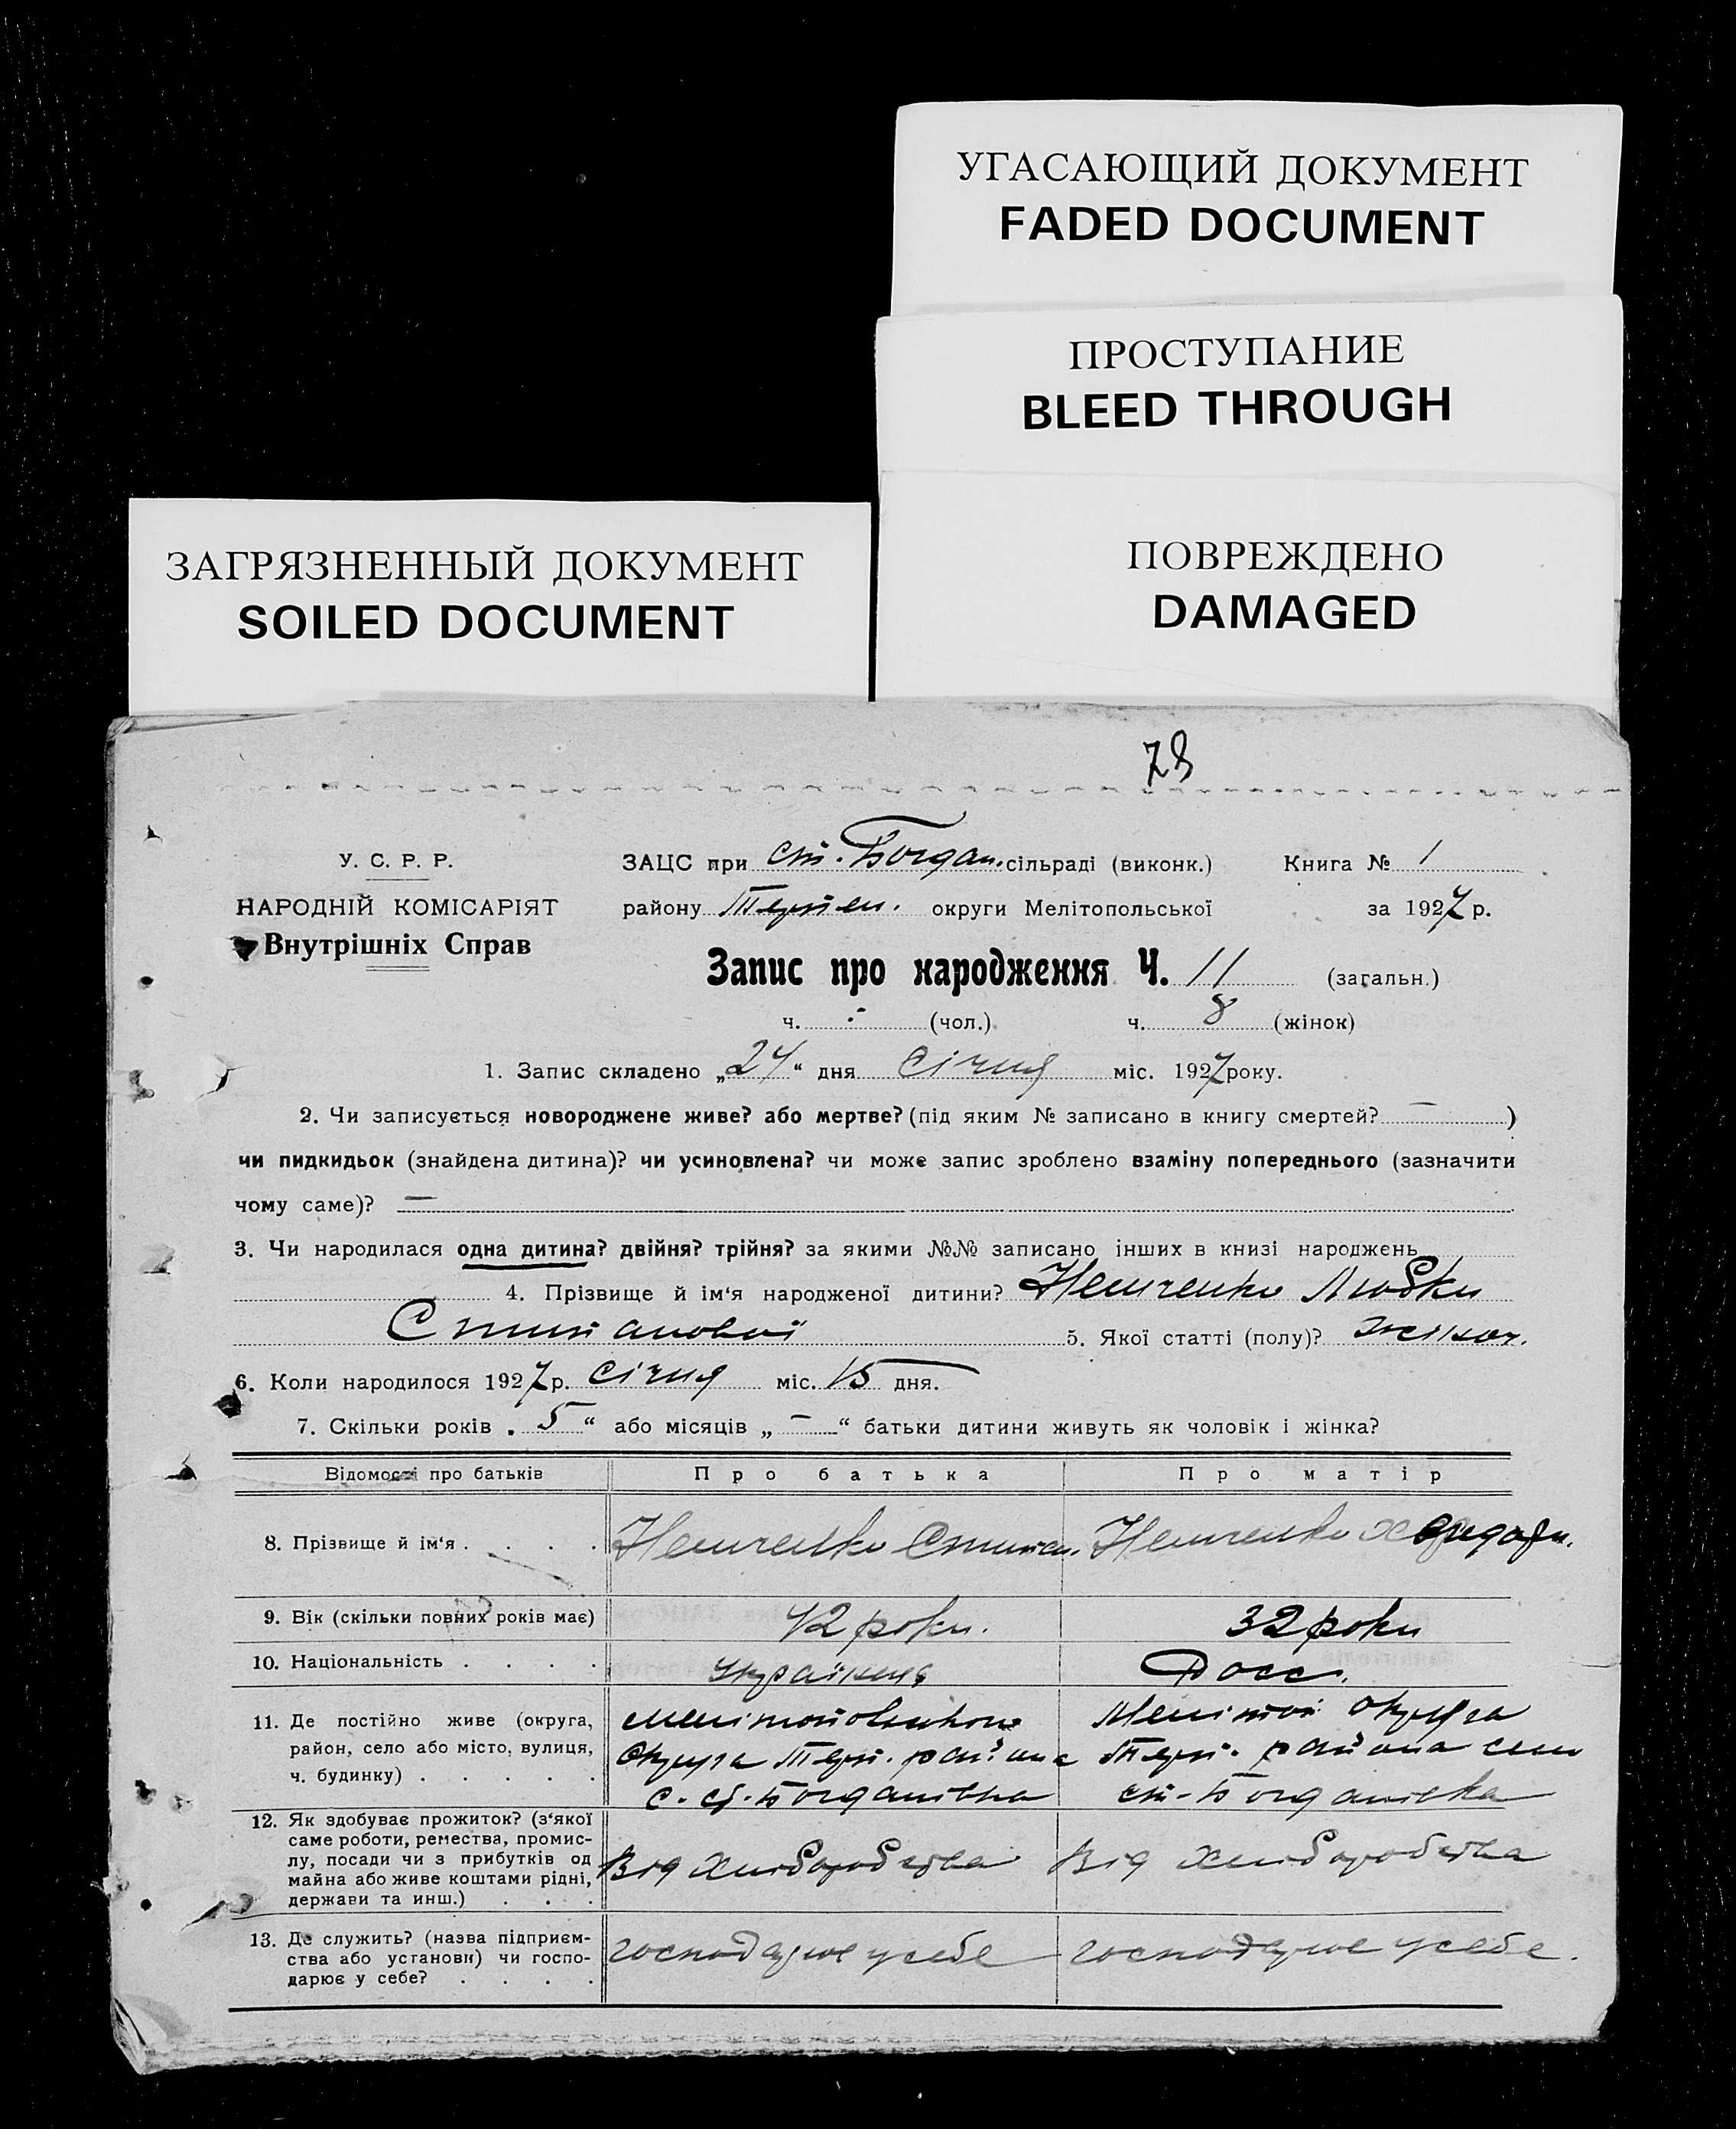 УГАСАЮЩИЙ ДОКУМЕНТ
FADED DOCUMENT
ПРОСТУПАНИЕ
BLEED THROUGH
ПОВРЕЖДЕНО
DAMAGED
ЗАГРЯЗНЕННЫЙ ДОКУМЕНТ
SOILED DOCUMENT
78
У. С. Р. Р.
НАРОДНІЙ КОМІСАРІЯТ
Внутрішніх Справ
ЗАЦС при ст. Богдан. сільраді (виконк.) Книга № 1
району Терпен. округи Мелітопольської за 1927 р.
Запис про народження Ч. 11 (загальн.)
ч. (чол.) ч. 8 (жінок)
1. Запис складено „24“ дня січня міс. 1927 року.
2. Чи записується новороджене живе? або мертве? (під яким № записано в книгу смертей? — )
чи пидкидьок (знайдена дитина)? чи усиновлена? чи може запис зроблено взаміну попереднього (зазначити
чому саме)? —
3. Чи народилася одна дитина? двійня? трійня? за якими №№ записано інших в книзі народжень
4. Прізвище й ім‘я народженої дитини? Немченко Любки
5. Якої статті (полу)? жіноч.
6. Коли народилося 1927 р. січня міс. 15 дня.
7. Скільки років „5“ або місяців „—“ батьки дитини живуть як чоловік і жінка?
Відомості про батьків Про батька Про матір
8. Прізвище й ім‘я . . . . Немченко Немченко
9. Вік (скільки повних років має) 42 роки. 32 роки
10. Національність . . . . Українец Росс.
11. Де постійно живе (округа,
район, село або місто, вулиця,
ч. будинку) . . . . .
Округа Терп. района
с. ст. Богданівка
Мелітоп. округа
Терп. района село
ст-Богданівка
12. Як здобуває прожиток? (з‘якої
саме роботи, ремества, промис-
лу, посади чи з прибутків од
майна або живе коштами рідні,
держави та инш.) . . .
Від Хлиборобства Від Хлиборобства
13. Де служить? (назва підприєм-
ства або установи) чи госпо-
дарює у себе? . . . .
господарює у себе господарює у себе.